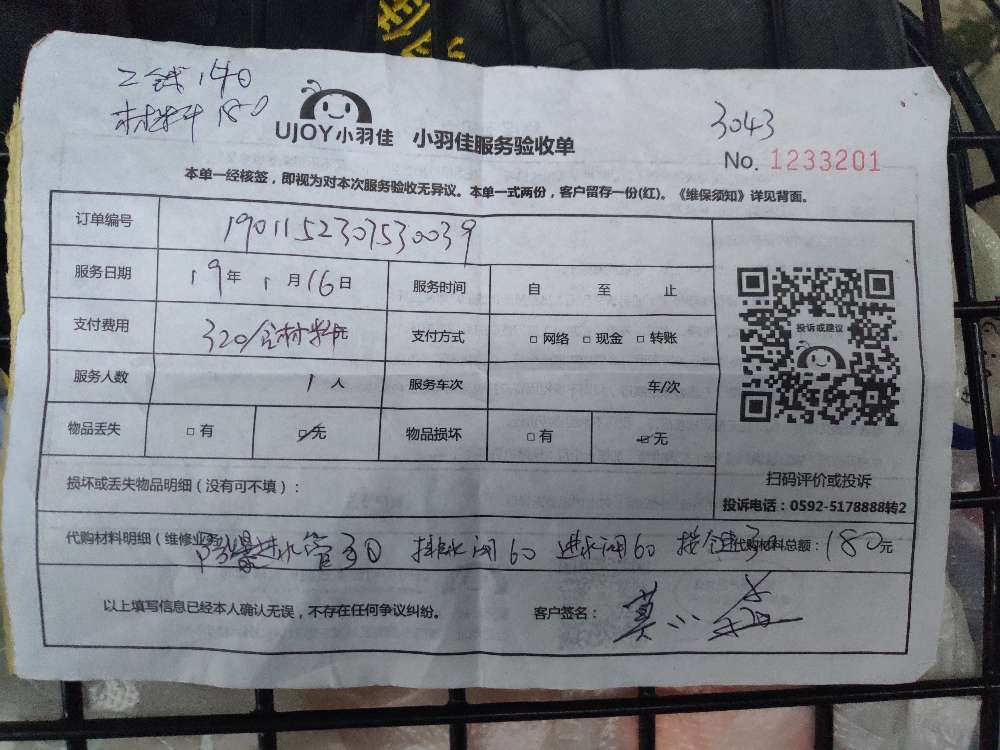 工钱140
材料180
UJOY小羽佳 小羽佳服务验收单
3043
No. 1233201
本单一经核签，即视为对本次服务验收无异议。本单一式两份，客户留存一份(红)。《维保须知》详见背面。
订单编号 190115230753003９
服务日期 19年1月16日 服务时间 自 至 止
支付费用 320/含材料元 支付方式 □ 网络 □ 现金 □ 转账
服务人数 1人 服务车次 车/次
物品丢失 □ 有 □ 无 物品损坏 □ 有 □ 无
投诉或建议
扫码评价或投诉
投诉电话：0592-5178888转2
损坏或丢失物品明细（没有可不填）：
代购材料明细（维修业务 防爆进水管30 排水阀60 进水阀60 按 代购材料总额：180元
以上填写信息已经本人确认无误，不存在任何争议纠纷。 客户签名：